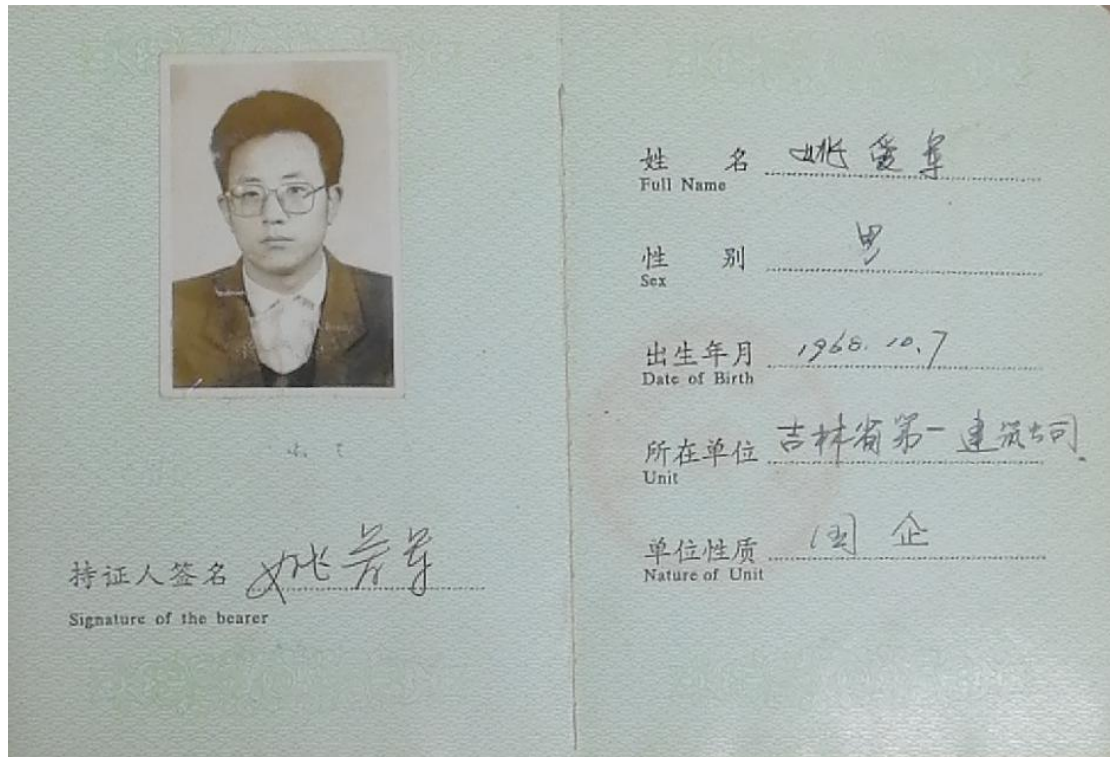 持证人签名 姚爱军
Signature of the bearer
姓 名 姚爱军
Full Name
性 别 男
Sex
出生年月 1968.10.7
Date of Birth
所在单位 吉林省第一建筑公司
Unit
单位性质 国企
Nature of Unit